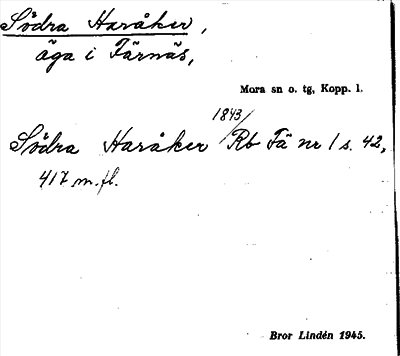 Södra Haråker,
äga i Färnäs,
Mora sn o. tg, Kopp. l.
1843/
Södra Haråker Rb Fä nr 1 s. 42,
417 m.fl.
Bror Lindén 1945.